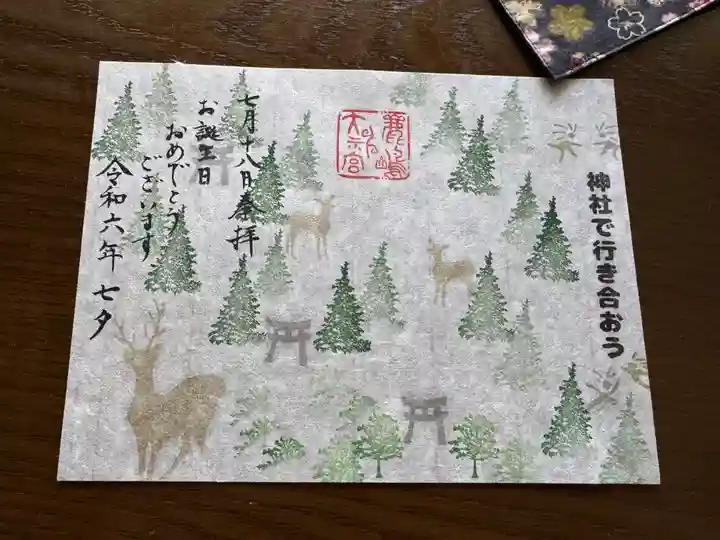 神社で行き合おう
鹿嶋
天神宮
七月十八日奉拝
お誕生日
おめでとう
ございます
令和六年 七夕